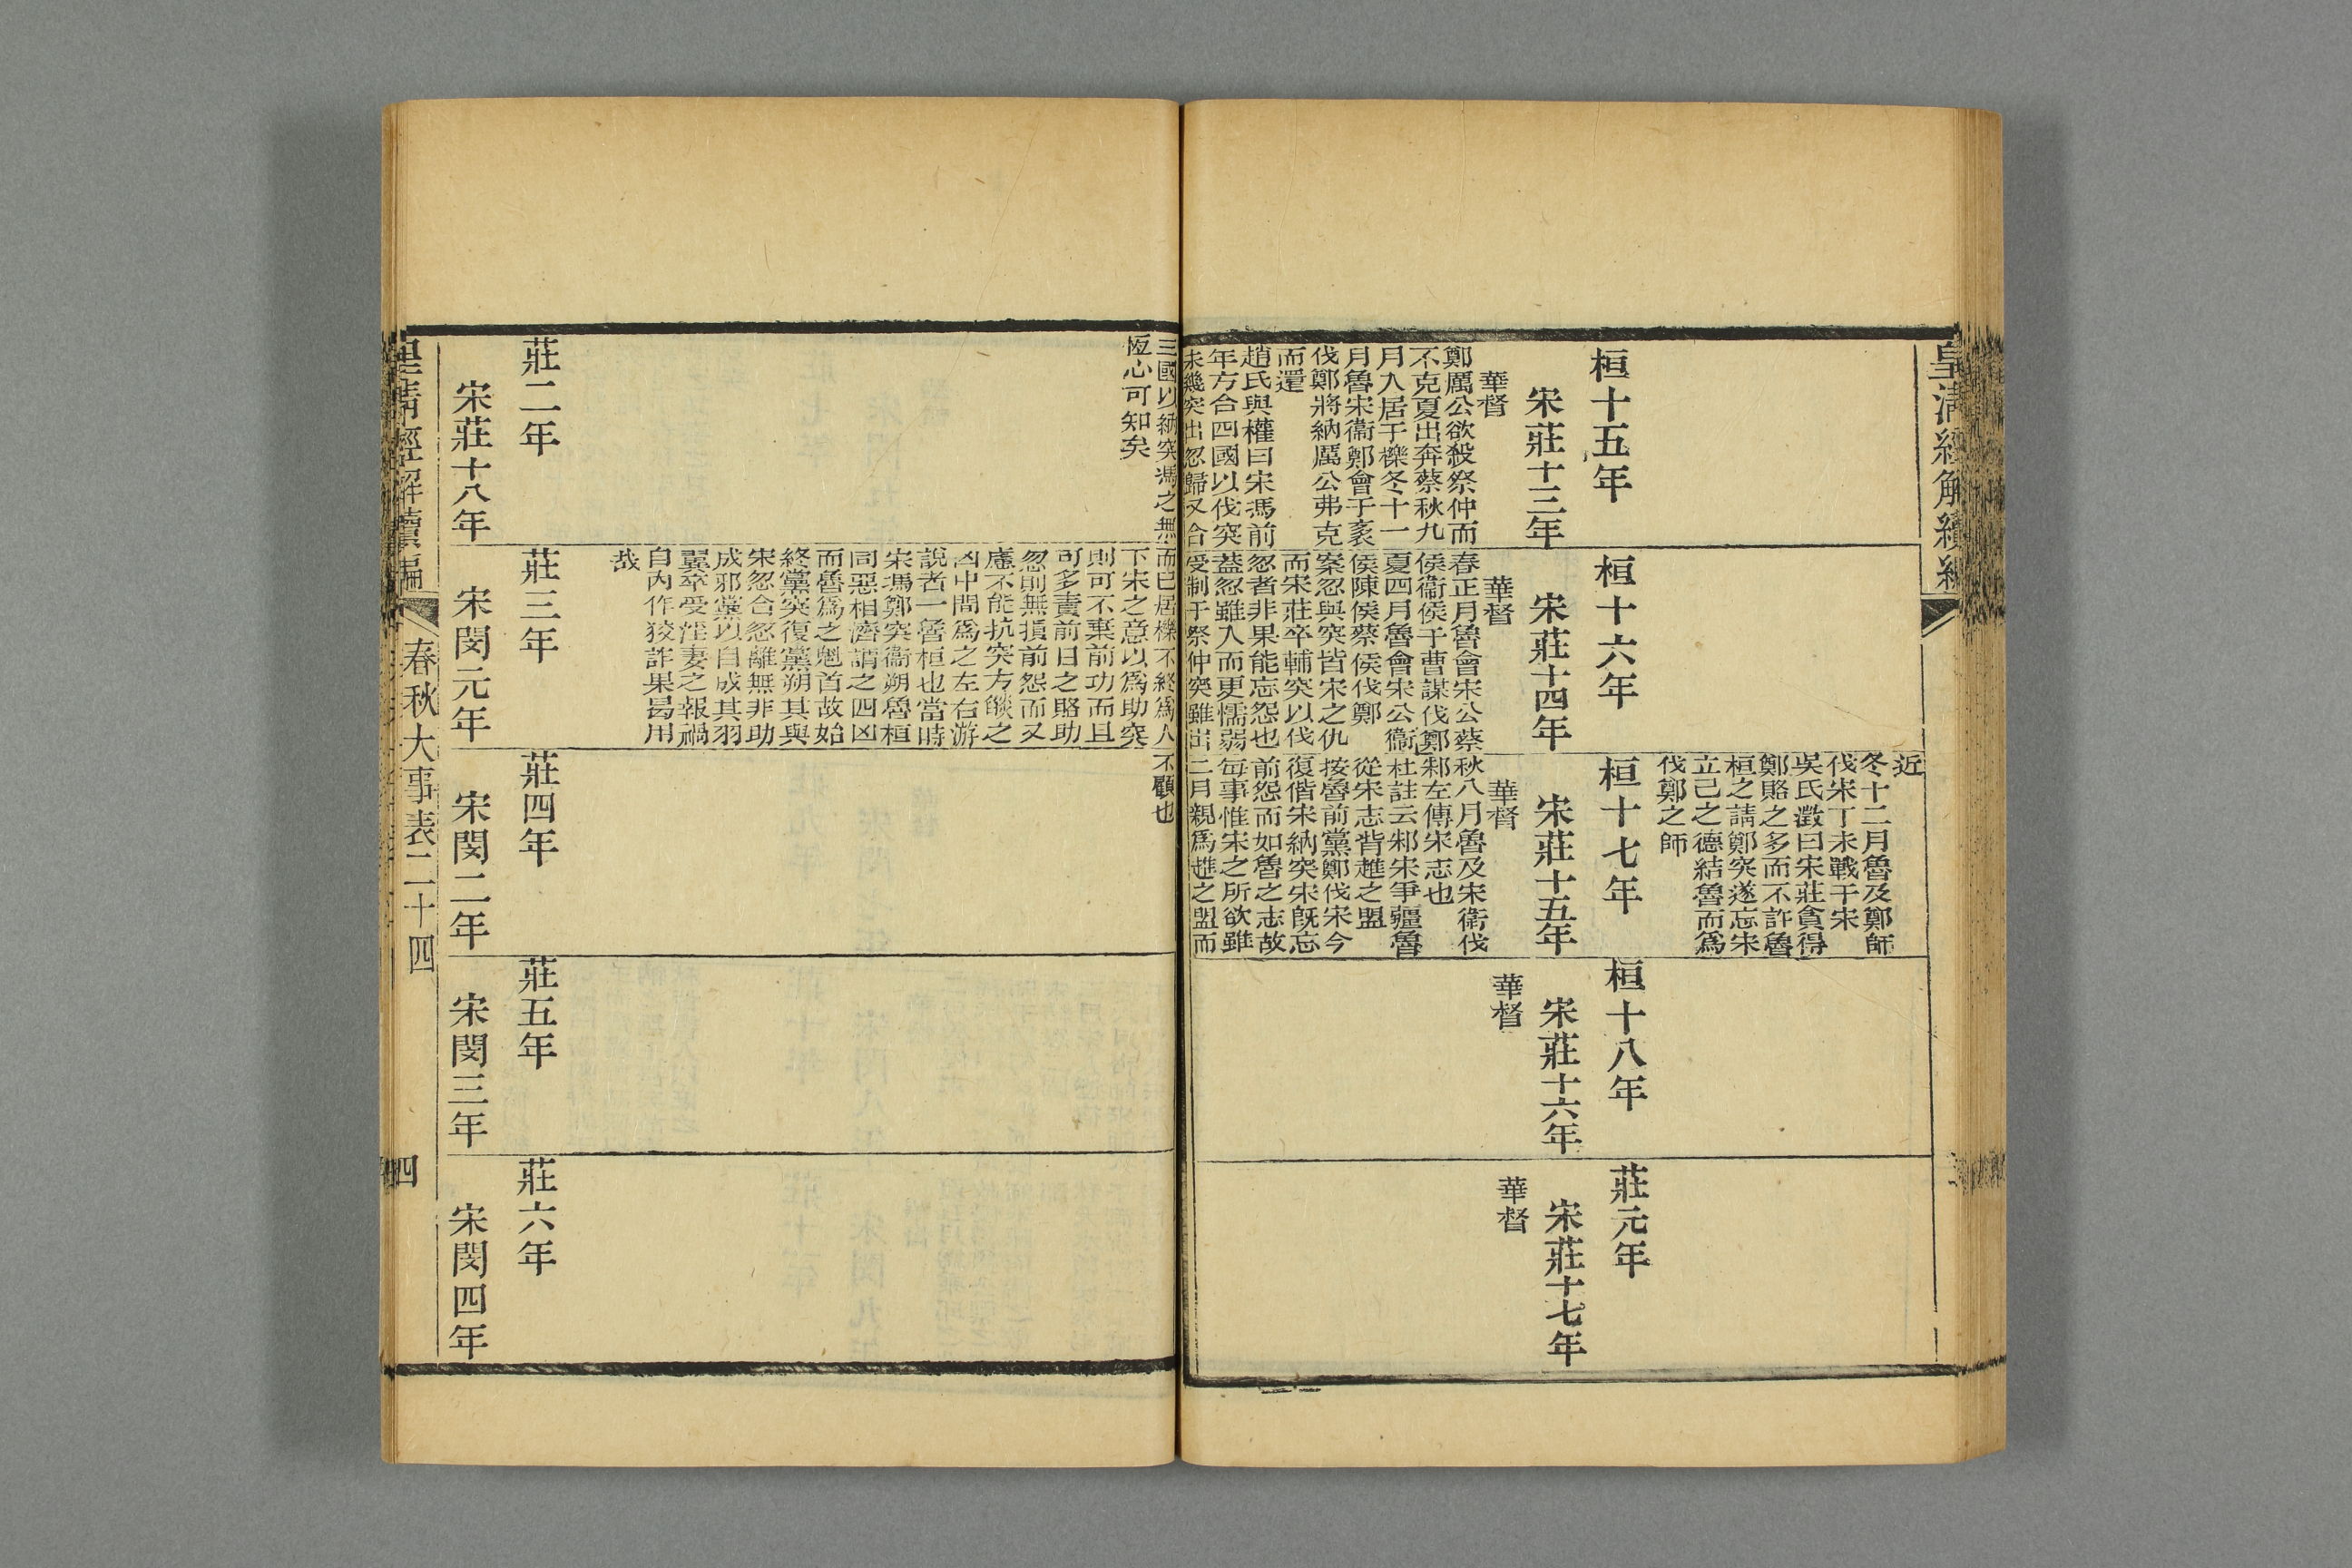 皇清經解續編
桓十五年
宋莊十三年
華督
鄭厲公欲殺祭仲而
不克夏出奔蔡秋九
月入居于櫟冬十一
月魯宋衞鄭會于袲
伐鄭將納厲公弗克
而還
趙氏與權曰宋馮前
年方合四國以伐突
未幾突出忽歸又合
桓十六年
宋莊十四年
華督
春正月魯會宋公蔡
侯衞侯于曹謀伐鄭
夏四月魯會宋公衞
侯陳侯蔡侯伐鄭
案忽與突皆宋之仇
而宋莊卒輔突以伐
忽者非果能忘怨也
蓋忽雖入而更懦弱
受制于祭仲突雖出
近
冬十二月魯及鄭師
伐宋丁未戰于宋
吳氏澂曰宋莊貪得
鄭賂之多而不許魯
桓之請鄭突遂忘宋
立己之德結魯而爲
伐鄭之師
桓十七年
宋莊十五年
華督
秋八月魯及宋衞伐
邾左傳宋志也
杜註云邾宋爭疆魯
從宋志背趡之盟
按魯前黨鄭伐宋今
復偕宋納突宋旣忘
前怨而如魯之志故
每事惟宋之所欲雖
二月親爲趡之盟而
桓十八年
宋莊十六年
華督
莊元年
宋莊十七年
華督
三國以納突馮之無
恆心可知矣
莊二年
宋莊十八年
而已居櫟不終爲人
下宋之意以爲助突
則可不棄前功而且
可多責前日之賂助
忽則無損前怨而又
慮不能抗突方燄之
凶中間爲之左右游
說者一魯桓也當時
宋馮鄭突衞朔魯桓
同惡相濟謂之四凶
而魯爲之魁首故始
終黨突復黨朔其與
宋忽合忽離無非助
成邪黨以自成其羽
翼卒受淫妻之報禍
自內作狡詐果曷用
哉
莊三年
宋閔元年
不顧也
莊四年
宋閔二年
莊五年
宋閔三年
莊六年
宋閔四年
皇淸經解續編
春秋大事表二十四
四